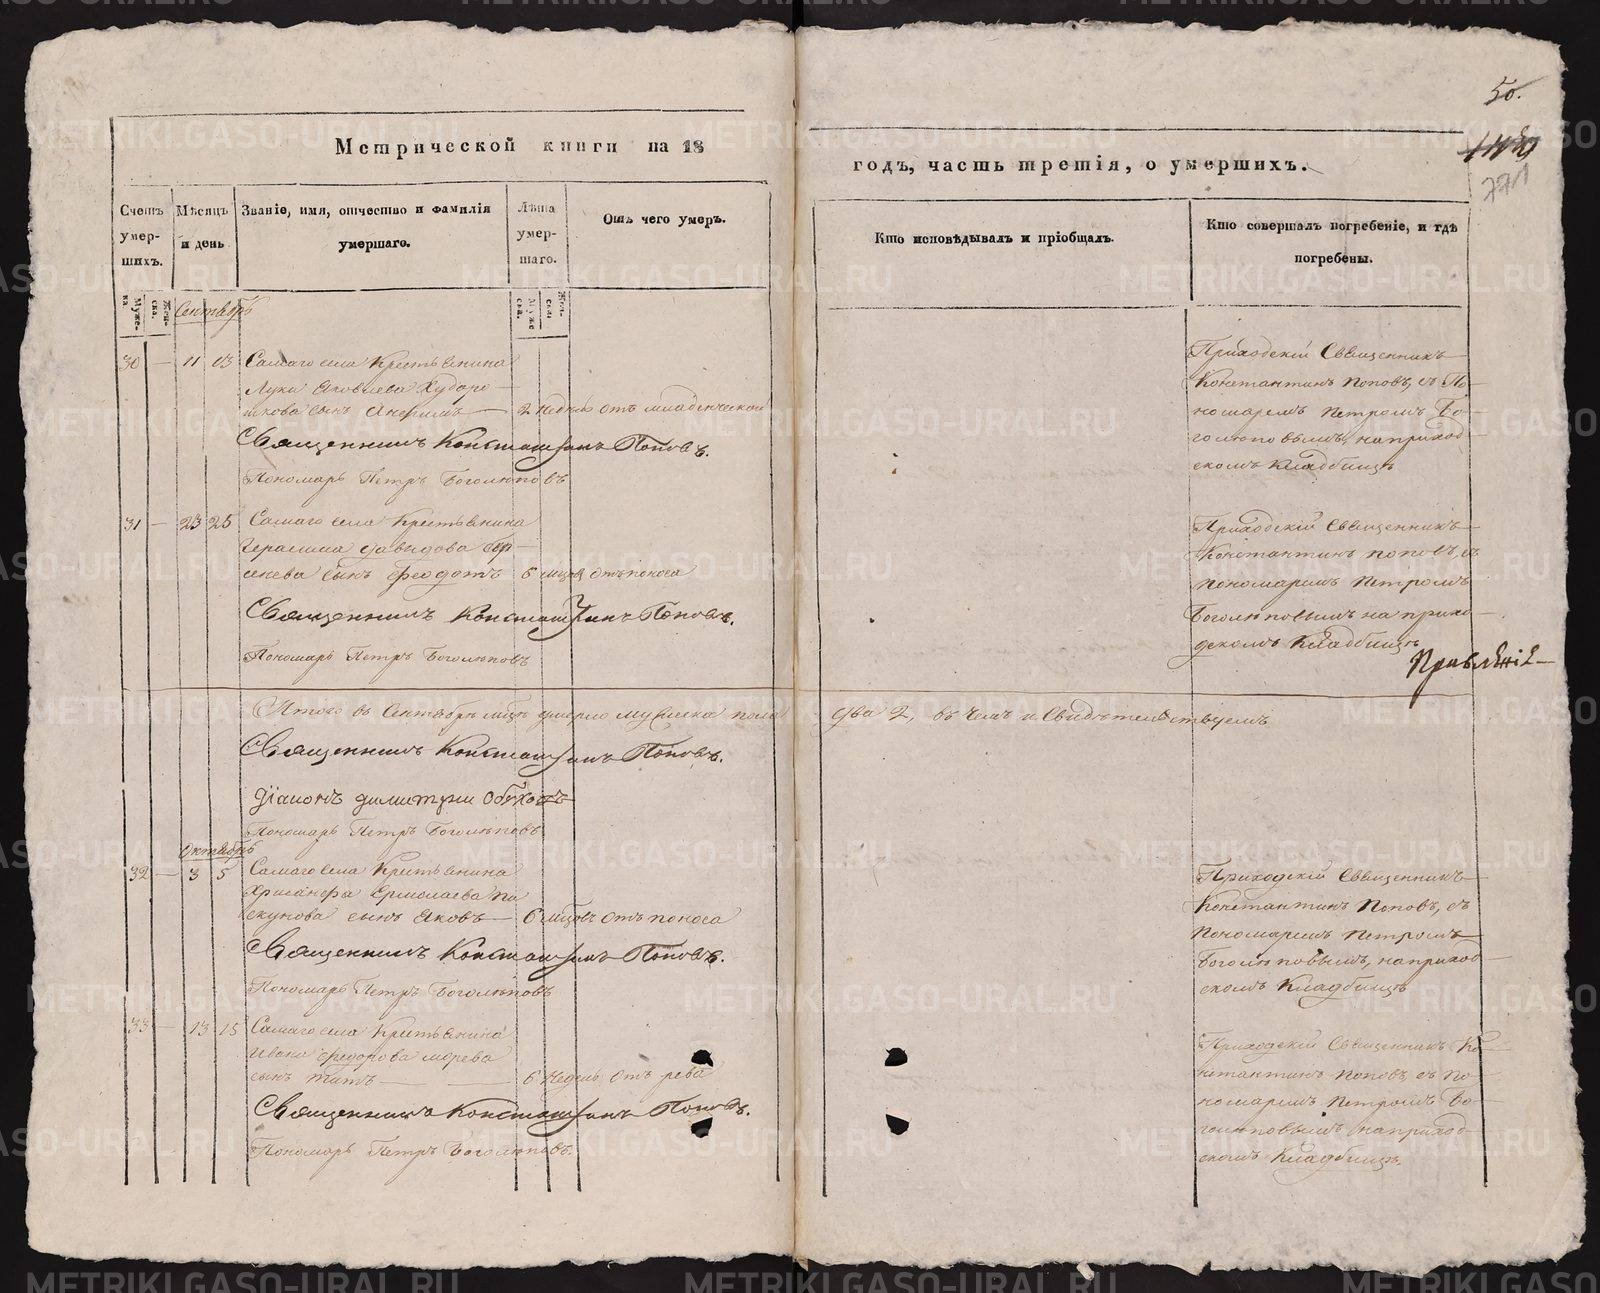 50.
771
Метрической книги на 18
годъ, часть третія, о умершихъ.
Счетъ умер-
шихъ.
Мѣсяцъ
и день
Званіе, имя, отчество и фамилія
умершаго.
Лѣта
умер-
шаго.
Отъ чего умеръ.
Кто исповѣдывалъ и пріобщалъ.
Кто совершалъ погребеніе, и гдѣ
погребены.
Муже-
ска
Жен-
ска.
Муже
ска.
Жен-
ска.
Сентябрь
30 — 11 13 Самаго села Крестьянина
Луки Яковлева Худоро-
шкова сынъ — 2 недѣль отъ младенческой
Священникъ Константинъ Поповъ.
Пономарь Петръ Боголюповъ
Приходскій Священникъ
Константинъ Поповъ, съ По-
номаремъ Петромъ Бо-
голюповымъ, наприход-
скомъ Кладбищѣ
31 — 23 25 Самаго села Крестьянина
Герасима Давыдова
сынъ Феодотъ 6 мцовъ отъ поноса
Священникъ Константинъ Поповъ.
Пономарь Петръ Боголюповъ
Приходскій Священникъ
Константинъ Поповъ, съ
пономаремъ Петромъ
Боголюповымъ на прихо-
дскомъ Кладбищѣ
Правленіе
Итого въ Сентябрѣ мцѣ умерло мужеска пола два 2, въ чемъ и Свидѣтельствуемъ
Священникъ Константинъ Поповъ.
Діаконъ Димитрій
Пономарь Петръ Боголюповъ
Октябрь
32 — 3 5 Самаго села Крестьянина
Хрисанфа Ермолаева Пи
скунова сынъ Яковъ — 6 мцовъ отъ поноса
Священникъ Константинъ Поповъ.
Пономарь Петръ Боголюповъ
Приходскій Священникъ
Константинъ Поповъ, съ
Пономаремъ Петромъ
Боголюповымъ, наприход-
скомъ Кладбищѣ
33 — 13 15 Самаго села Крестьянина
Ивана Федорова Морева
сынъ Титъ — 6 недѣль отъ рева
Священникъ Константинъ Поповъ.
Пономарь Петръ Боголюповъ.
Приходскій Священникъ Ко-
нстантинъ Поповъ, съ По-
номаремъ Петромъ Бо-
голюповымъ наприход-
скомъ Кладбищѣ.
METRIKI.GASO-URAL.RU